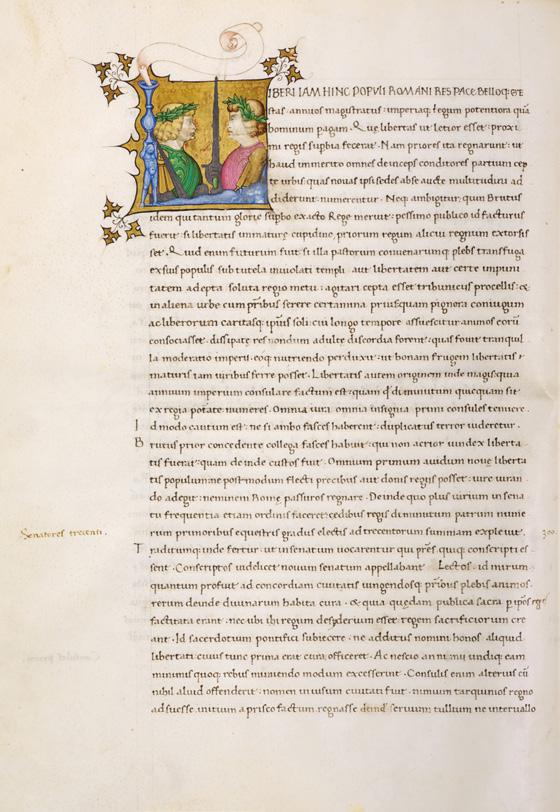 IBERI IAM HINC POPULI ROMANI RES PACE BELLOQ; GE
stas · annuos magistratus : imperiaq; legum potentiora quā
hominum pagam · Que libertas ut letior esset : proxi
mi regis supbia fecerat · Nam priores ita regnarunt : ut
haud immerito omnes deinceps conditores partium cer
te urbis quas novas ipsi sedes abse aucte multitudini ad
diderunt : numerentur · Neq; ambigitur : quin Brutus
idem qui tantum glorie supbo exacto Rege meruit : pessimo publico id facturus
fuerit : si libertatis immature cupidine, priorum regum alicui regnum extorsis
set · Quid enim futurum fuit si illa pastorum convenarumq; plebs transfuga
ex suis populis sub tutela inviolati templi aut libertatem aut certe impuni
tatem adepta soluta regio metu : agitari cepta esset tribuniciis procellis : &
in aliena urbe cum pr̄ibus serere certamina priusquam pignora coniugum
ac liberorum caritasq; ipsius soli : cui longo tempore assuescitur : animos eorū
consociasset : dissipate res nondum adulte discordia forent : quas fovit tranquil
la moderatio imperii : eoq; nutriendo perduxit : ut bonam frugem libertatis
maturis iam viribus ferre posset · Libertatis autem originem inde magis quia
annuum imperium consulare factum est : quam q̄ deminutum quicquam sit
ex regia potate numeres · Omnia iura omnia insignia primi consules tenuere ·
I d modo cautum est : ne si ambo fasces haberent : duplicatus terror videretur ·
B rutus prior concedente collega fasces habuit : qui non acrior vindex liberta
tis fuerat : quam deinde custos fuit · Omnium primum avidum nove liberta
tis populum : ne postmodum flecti precibus aut donis regiis posset : iure iuran
do adegit : neminem Rome passuros regnare · Deinde quo plus virium in sena
tu frequentia etiam ordinis faceret : cedibus regis deminutum patrum nume
Senatores trecenti ·
rum primoribus equestris gradus electis ad trecentorum summam explevit ·
300 ·
T raditumq; inde fertur : ut in senatum vocarentur qui pr̄es, quiq; conscripti es
sent · Conscriptos videlicet novum senatum appellabant Lectos · id mirum
quantum profuit ad concordiam civitatis iungendosq; pr̄ibus plebis animos ·
rerum deinde divinarum habita cura · & quia quedam publica sacra p ipsos reges
factitata erant : nec ubi ubi regum desyderium esset : regem sacrificiorum cre
ant · Id sacerdotium pontifici subiecere · ne additus nomini honos aliquid
libertati cuius tunc prima erat cura, officeret · Ac nescio an nimis undiq; eam
minimisquoq; rebus muniendo modum excesserint · Consulis enim alterius cū
nihil aliud offenderit : nomen invisum civitati fuit · nimium tarquinios regno
adsuesse · initium a prisco factum · regnasse deind̄ servium tullium ne intervallo